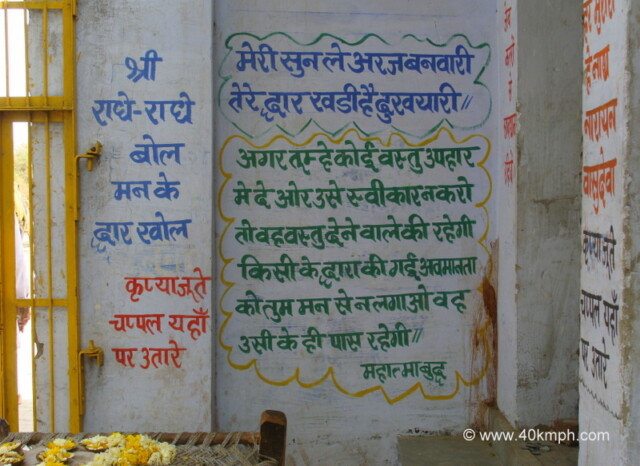 श्री
राधे-राधे
बोल
मन के
द्वार खोल
कृप्या जूते
चप्पल यहाँ
पर उतारे
मेरी सुन ले अरज बनवारी
तेरे द्वार खडी है दुखयारी॥
अगर तुम्हे कोई वस्तु उपहार
मे दे ओर उसे स्वीकार न करो
तो वह वस्तु देने वाले की रहेगी
किसी के द्वारा की गई अवमानता
को तुम मन से न लगाओ वह
उसी के ही पास रहेगी॥
महात्मा बुद्ध
मुरारी
हे नाथ
नारायन
वासुदेवा
कृप्या जूते
चप्पल यहाँ
पर उतारे
© www.40kmph.com